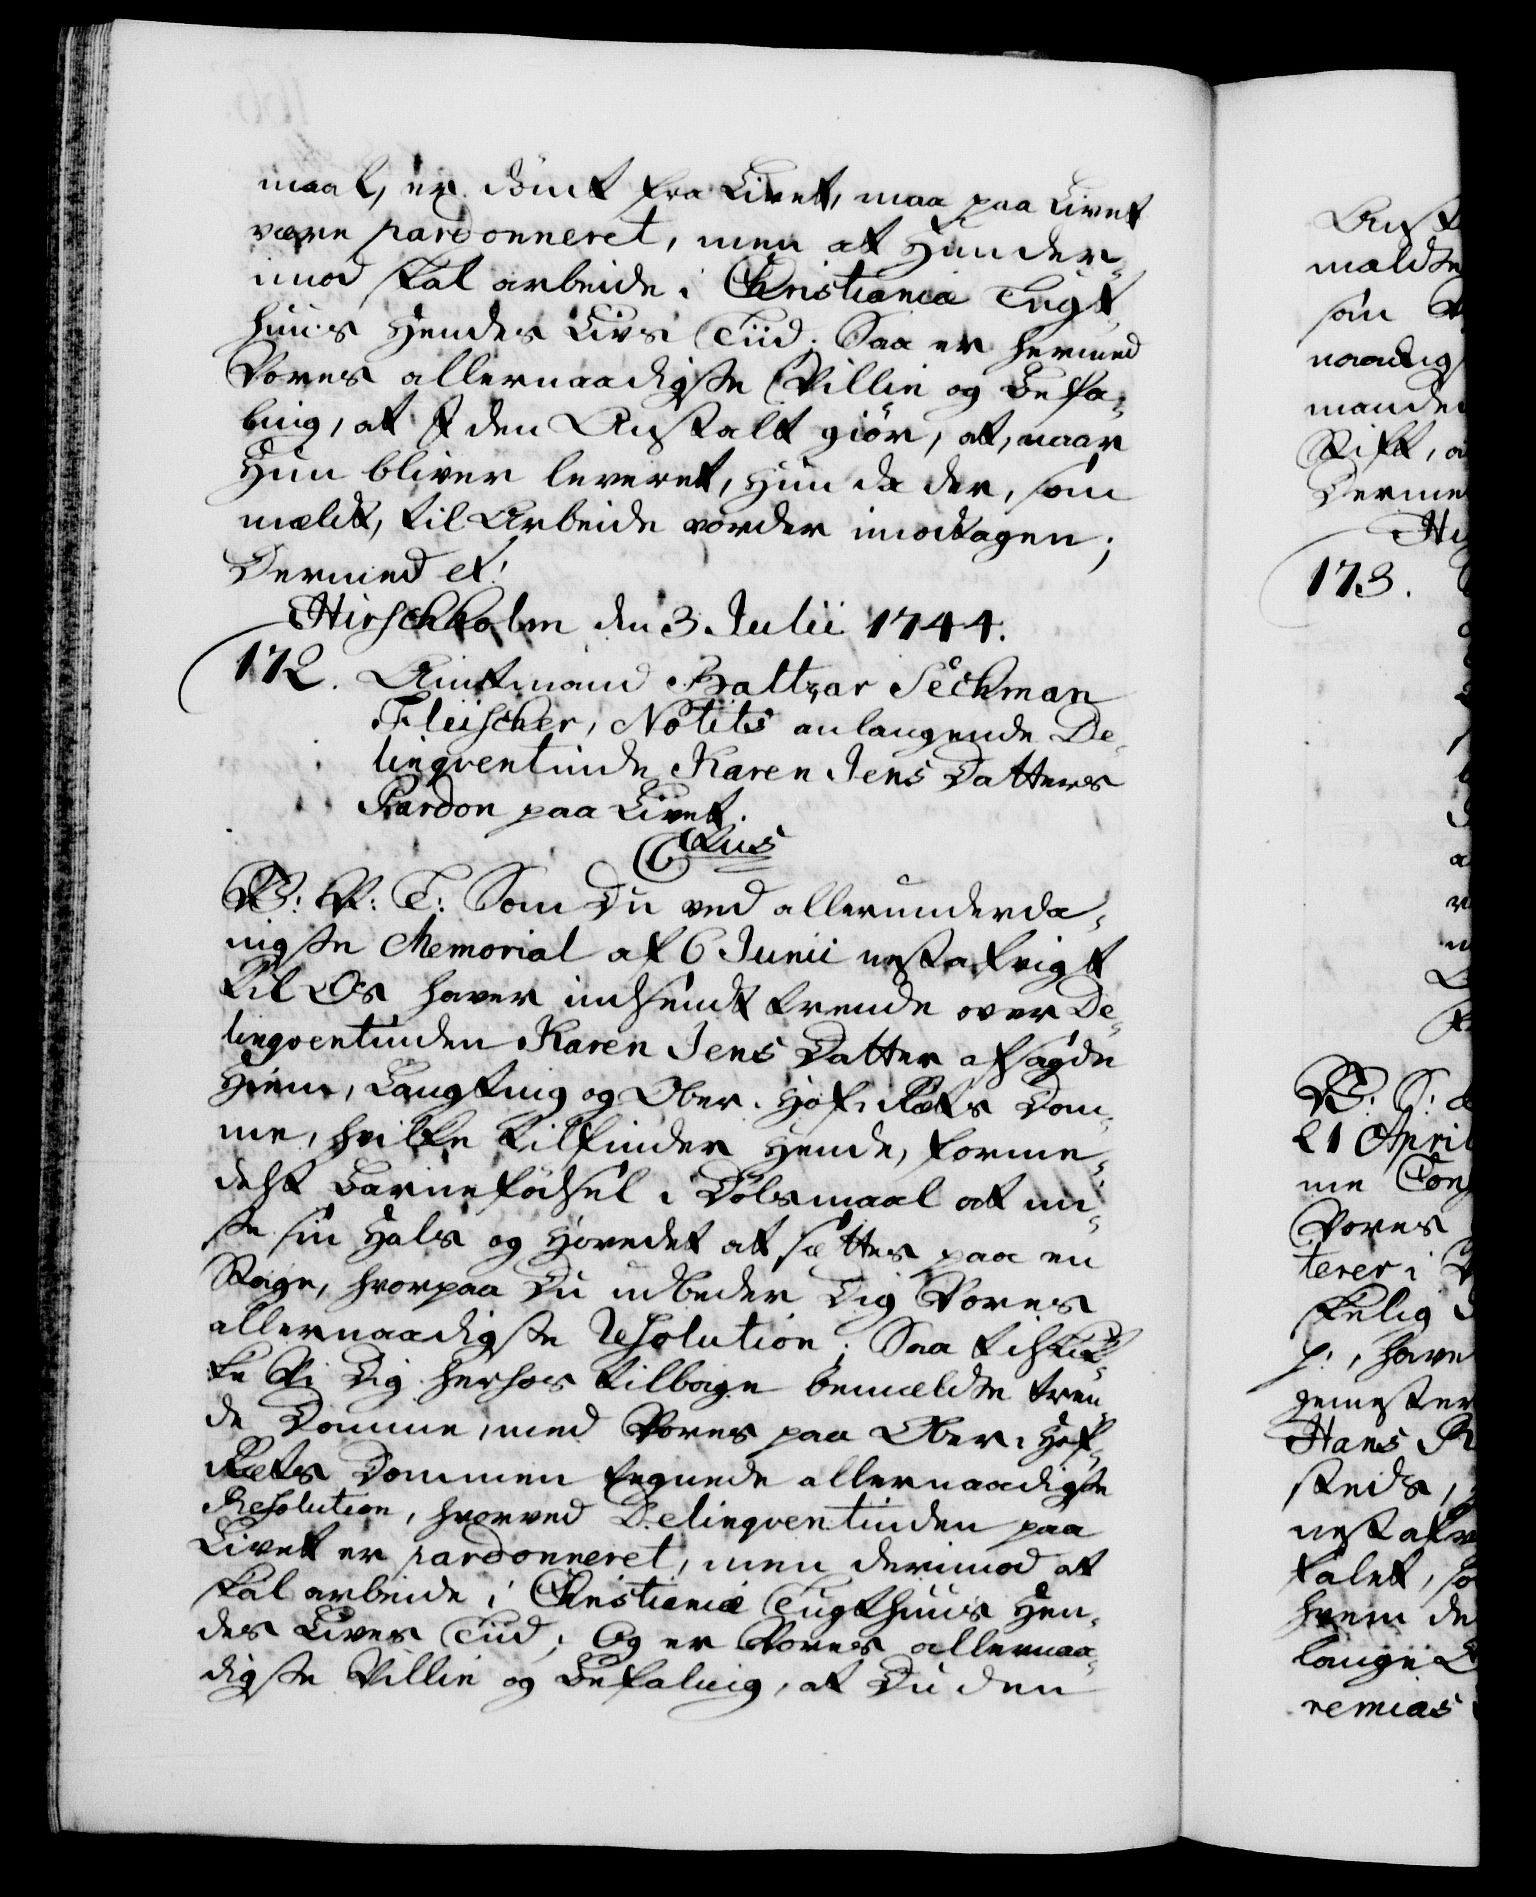 maal, er dömt fra Livet, maa paa Livet
være pardonneret, men at Hun der-
imod skal arbeide i Christiania Tugt-
huus Hendes Livs Tiid; Saa er hermed
Vores allernaadigste Villie og Befa-
ling, at I den Anstalt giör, at, naar
Hun bliver leveret, Hun da der, som
meldt, til Arbeide vorder imodtagen;
Dermed etc:
Hirschholm den 3 Julii 1744.
172. Amtmand Baltzar Sechman
Fleischer, Notits anlangende De-
linqventinde Karen Jens Datters
Pardon paa Livet.
C6tus
V: G: T: Som Du ved allerunderda-
nigste Memorial af 6 Junii nestafvigt
til Os haver indsendt trende over De-
linqventinden Karen Jens Datter afsagde
Hiem, Laugting og Ober-Hof-Rets Dom-
me, hvilke tilfinder Hende, forme-
delst Barnefödsel i Dölsmaal at mi-
ste sin Hals og Hovedet at sættes paa en
Stage, hvorpaa Du udbeder Dig Vores
allernaadigste Resolution; Saa tilskik-
ke Vi Dig herhos tilbage bemeldte tren-
de Domme, med Vores paa Ober-Hof-
Rets Dommen tegnede allernaadigste
Resolution, hvorved Delinqventinden paa
Livet er pardonneret, men derimod at
skal arbeide i Christianiæ Tugthuus Hen-
des Lives Tiid; Og er Vores allernaa-
digste Villie og Befaling, at Du den
mældte
som
naadigs
mander
Stift, a
Derme
173.
21 April
me
Vores
terer i
p:, have
gemester
Hans
steds,
nestafv
talet, so
hvem de
lange
remias